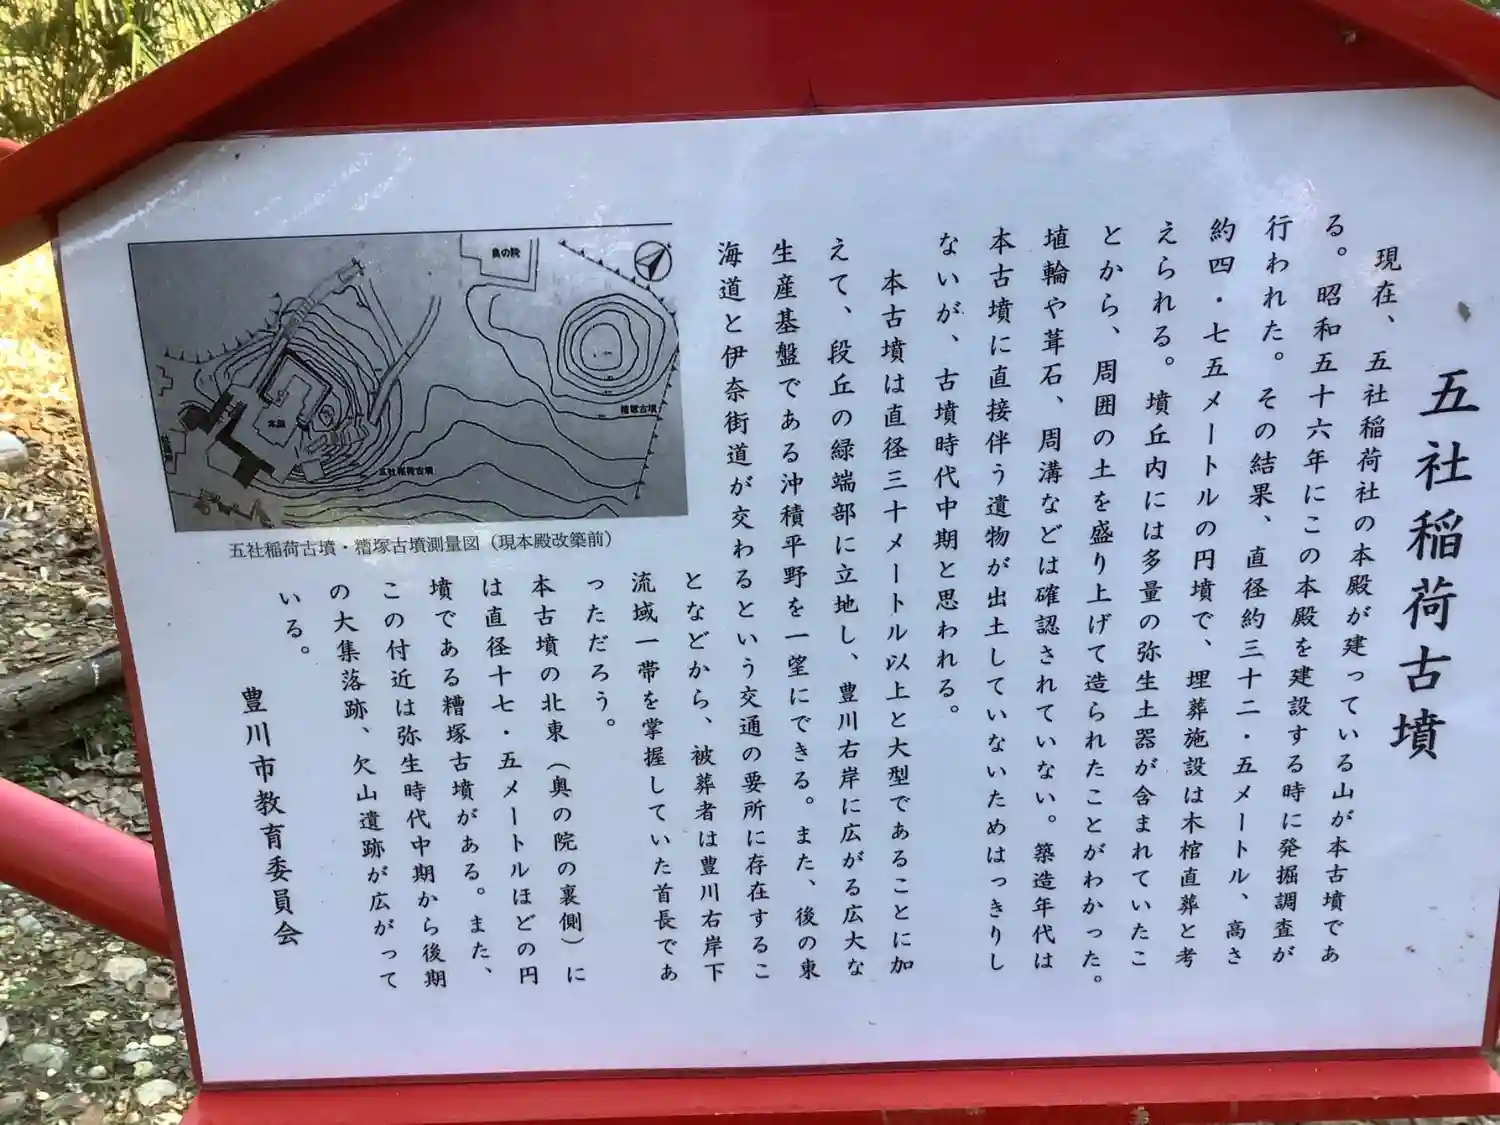 五社稲荷古墳
現在、五社稲荷社の本殿が建っている山が本古墳であ
る。昭和五十六年にこの本殿を建設する時に発掘調査が
行われた。その結果、直径約三十二・五メートル、高さ
約四・七五メートルの円墳で、埋葬施設は木棺直葬と考
えられる。墳丘内には多量の弥生土器が含まれていたこ
とから、周囲の土を盛り上げて造られたことがわかった。
埴輪や葺石、周溝などは確認されていない。築造年代は
本古墳に直接伴う遺物が出土していないためはっきりし
ないが、古墳時代中期と思われる。
本古墳は直径三十メートル以上と大型であることに加
えて、段丘の縁端部に立地し、豊川右岸に広がる広大な
生産基盤である沖積平野を一望にできる。また、後の東
海道と伊奈街道が交わるという交通の要所に存在するこ
となどから、被葬者は豊川右岸下
流域一帯を掌握していた首長であ
っただろう。
本古墳の北東（奥の院の裏側）に
は直径十七・五メートルほどの円
墳である糟塚古墳がある。また、
この付近は弥生時代中期から後期
の大集落跡、欠山遺跡が広がって
いる。
豊川市教育委員会
奥の院
糟塚古墳
本殿
五社稲荷古墳
五社稲荷古墳・糟塚古墳測量図（現本殿改築前）